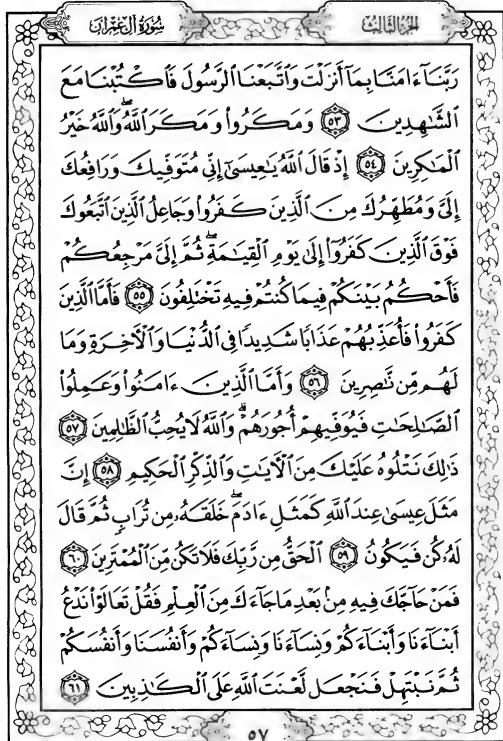 الجزء الثالث
سورة آل عمران
رَبَّنَآ ءَامَنَّا بِمَآ أَنزَلْتَ وَٱتَّبَعْنَا ٱلرَّسُولَ فَٱكْتُبْنَا مَعَ
ٱلشَّـٰهِدِينَ ٥٣ وَمَكَرُوا۟ وَمَكَرَ ٱللَّهُ ۖ وَٱللَّهُ خَيْرُ
ٱلْمَـٰكِرِينَ ٥٤ إِذْ قَالَ ٱللَّهُ يَـٰعِيسَىٰٓ إِنِّى مُتَوَفِّيكَ وَرَافِعُكَ
إِلَىَّ وَمُطَهِّرُكَ مِنَ ٱلَّذِينَ كَفَرُوا۟ وَجَاعِلُ ٱلَّذِينَ ٱتَّبَعُوكَ
فَوْقَ ٱلَّذِينَ كَفَرُوٓا۟ إِلَىٰ يَوْمِ ٱلْقِيَـٰمَةِ ۖ ثُمَّ إِلَىَّ مَرْجِعُكُمْ
فَأَحْكُمُ بَيْنَكُمْ فِيمَا كُنتُمْ فِيهِ تَخْتَلِفُونَ ٥٥ فَأَمَّا ٱلَّذِينَ
كَفَرُوا۟ فَأُعَذِّبُهُمْ عَذَابًا شَدِيدًا فِى ٱلدُّنْيَا وَٱلْـَٔاخِرَةِ وَمَا
لَهُم مِّن نَّـٰصِرِينَ ٥٦ وَأَمَّا ٱلَّذِينَ ءَامَنُوا۟ وَعَمِلُوا۟
ٱلصَّـٰلِحَـٰتِ فَيُوَفِّيهِمْ أُجُورَهُمْ ۗ وَٱللَّهُ لَا يُحِبُّ ٱلظَّـٰلِمِينَ ٥٧
ذَٰلِكَ نَتْلُوهُ عَلَيْكَ مِنَ ٱلْـَٔايَـٰتِ وَٱلذِّكْرِ ٱلْحَكِيمِ ٥٨ إِنَّ
مَثَلَ عِيسَىٰ عِندَ ٱللَّهِ كَمَثَلِ ءَادَمَ ۖ خَلَقَهُۥ مِن تُرَابٍ ثُمَّ قَالَ
لَهُۥ كُن فَيَكُونُ ٥٩ ٱلْحَقُّ مِن رَّبِّكَ فَلَا تَكُن مِّنَ ٱلْمُمْتَرِينَ ٦٠
فَمَنْ حَآجَّكَ فِيهِ مِنۢ بَعْدِ مَا جَآءَكَ مِنَ ٱلْعِلْمِ فَقُلْ تَعَالَوْا۟ نَدْعُ
أَبْنَآءَنَا وَأَبْنَآءَكُمْ وَنِسَآءَنَا وَنِسَآءَكُمْ وَأَنفُسَنَا وَأَنفُسَكُمْ
ثُمَّ نَبْتَهِلْ فَنَجْعَل لَّعْنَتَ ٱللَّهِ عَلَى ٱلْكَـٰذِبِينَ ٦١
٥٧